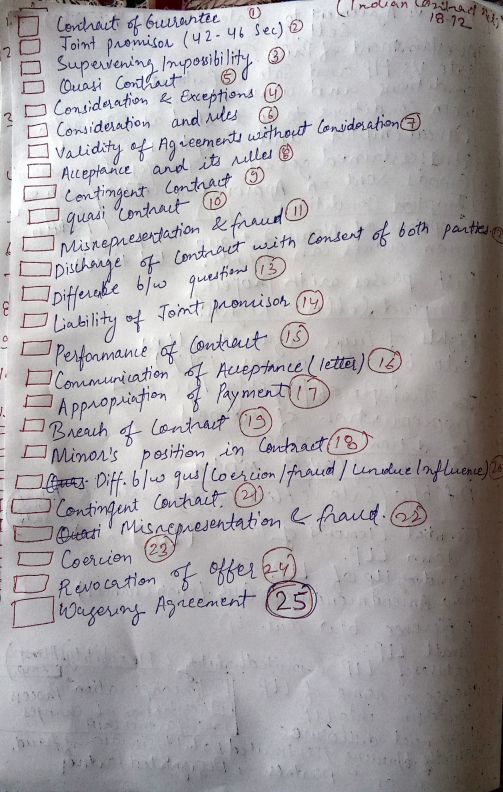 (Indian Contract Act,
1872
Contract of Guarantee ①
Joint promisor (42-46 Sec) ②
Supervening Impossibility ③
Quasi Contract ⑤
Consideration & Exceptions ④
Consideration and rules ⑥
Validity of Agreements without Consideration ⑦
Acceptance and its rules ⑧
Contingent Contract ⑨
quasi Contract ⑩
Misrepresentation & fraud ⑪
Discharge of Contract with Consent of both parties
Difference b/w question ⑬
Liability of Joint promisor ⑭
Performance of Contract ⑮
Communication of Acceptance (letter) ⑯
Appropriation of Payment ⑰
Breach of Contract ⑲
Minor's position in Contract ⑱
Diff. b/w qus (Coercion/fraud/undue Influence)
Contingent Contract. ㉑
Quasi Misrepresentation & fraud. ㉒
Coercion ㉓
Revocation of offer ㉔
Wagering Agreement ㉕